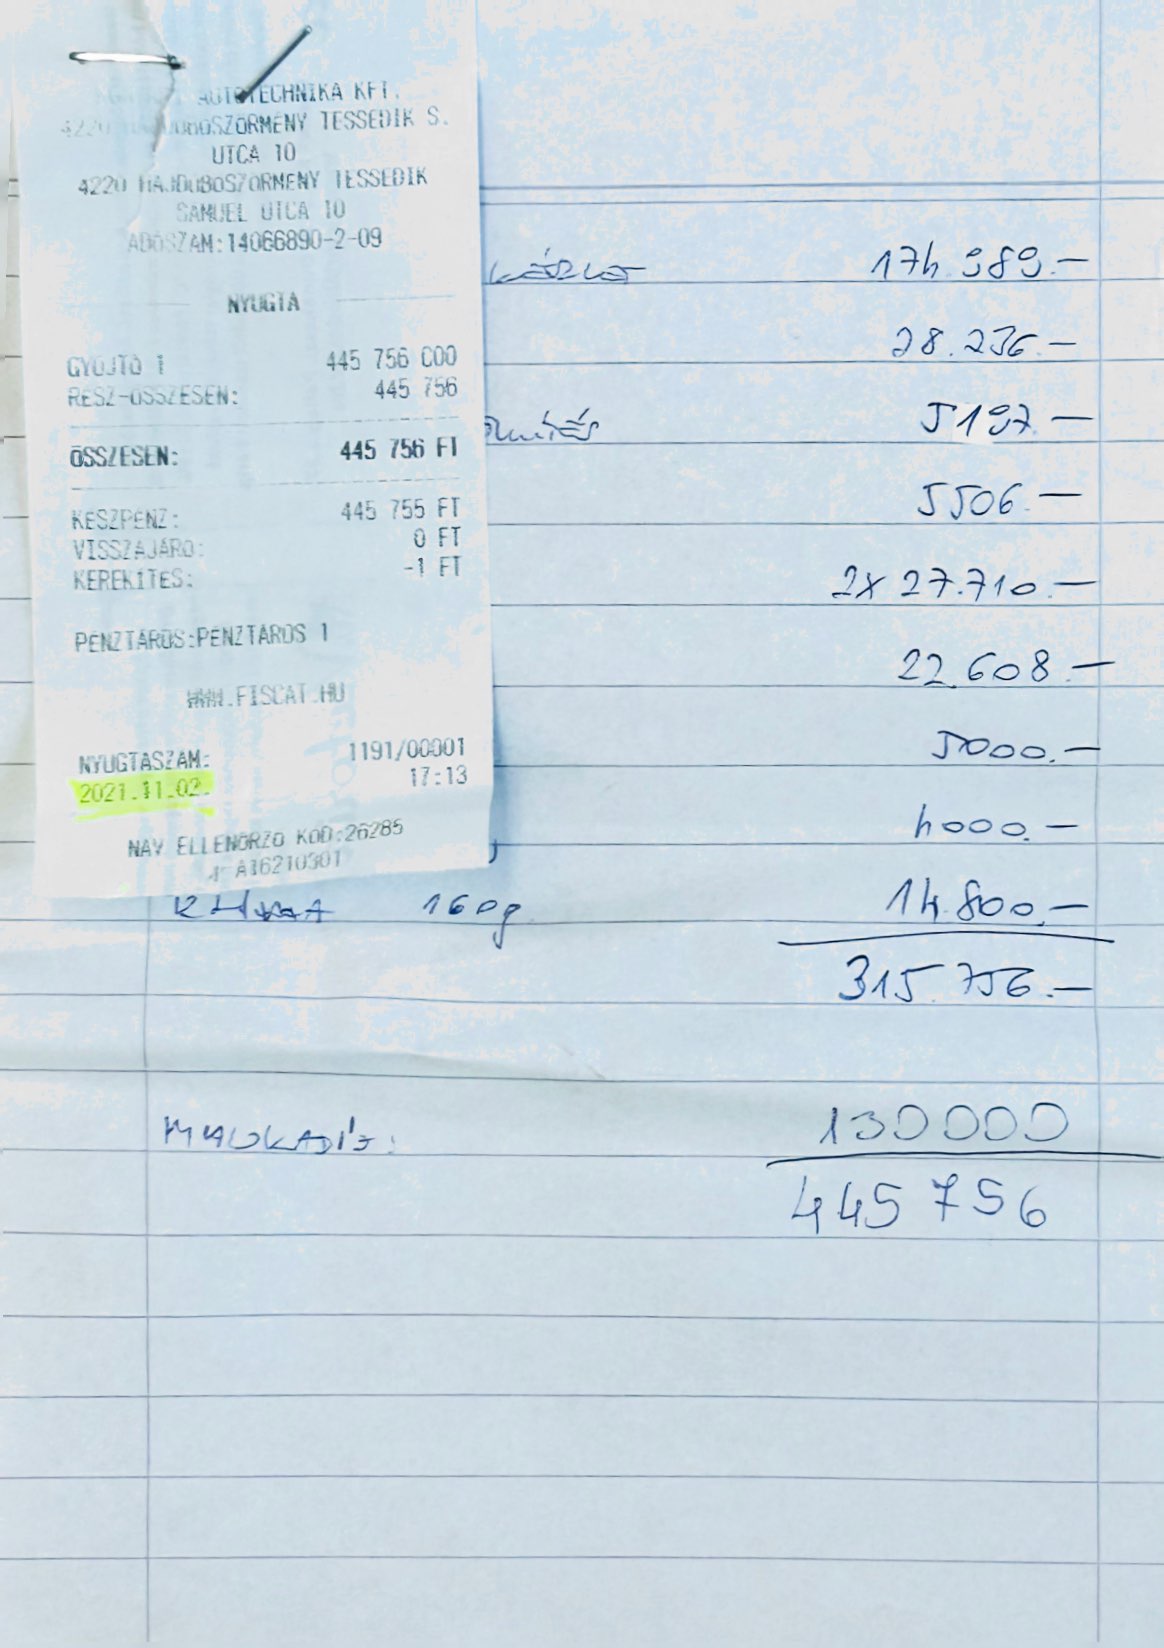 AUTOTECHNIKA KFT.
4220 HAJDUBOSZORMENY TESSEDIK S.
UTCA 10
4220 HAJDUBOSZORMENY TESSEDIK
SAMUEL UTCA 10
ADOSZAM:14066890-2-09
NYUGTA
GYUJTO 1 445 756 C00
RESZ-OSSZESEN: 445 756
ÖSSZESEN: 445 756 FT
KESZPENZ: 445 755 FT
VISSZAJARO: 0 FT
KEREKITES: -1 FT
PENZTAROS:PENZTAROS 1
WWW.FISCAT.HU
NYUGTASZAM: 1191/00001
2021.11.02. 17:13
NAV ELLENORZO KOD:26285
A16210301
174.989.-
28.236.-
5197.-
5506.-
2x 27.710.-
22.608.-
5000.-
4000.-
KLÍMA 160g 14.800.-
315.756.-
MUNKADÍJ: 130000
445 756